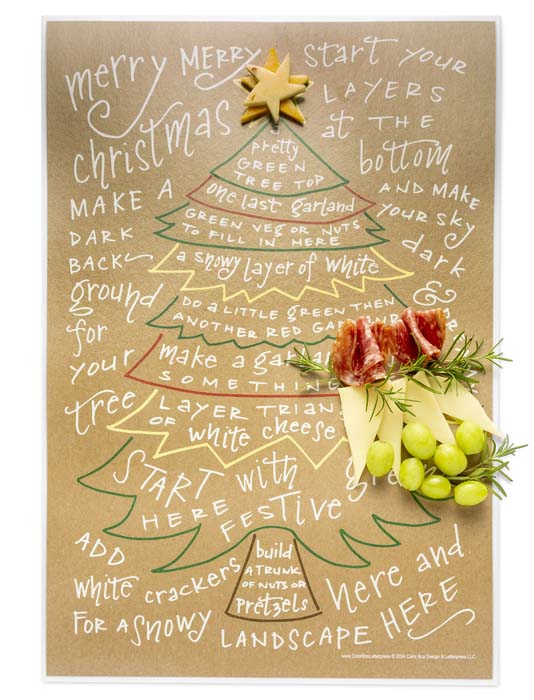 merry MERRY
christmas
MAKE A
DARK
BACK
ground
for
your
tree
START YOUR
LAYERS
at THE
bottom
AND MAKE
YOUR SKY
dark
&
pretty
GREEN
TREE TOP
one last garland
GREEN VEG OR NUTS
TO FILL IN HERE
a snowy layer of white
DO A LITTLE GREEN THEN
ANOTHER RED
make a
SOMETHING
LAYER
OF white cheese
START with
HERE FESTIVE
build
A TRUNK
OF NUTS OR
PRETZELS
ADD
white crackers
FOR A SNOWY
LANDSCAPE HERE
here and
www.ColorBoxLetterpress © 2024 Color Box Design & Letterpress LLC